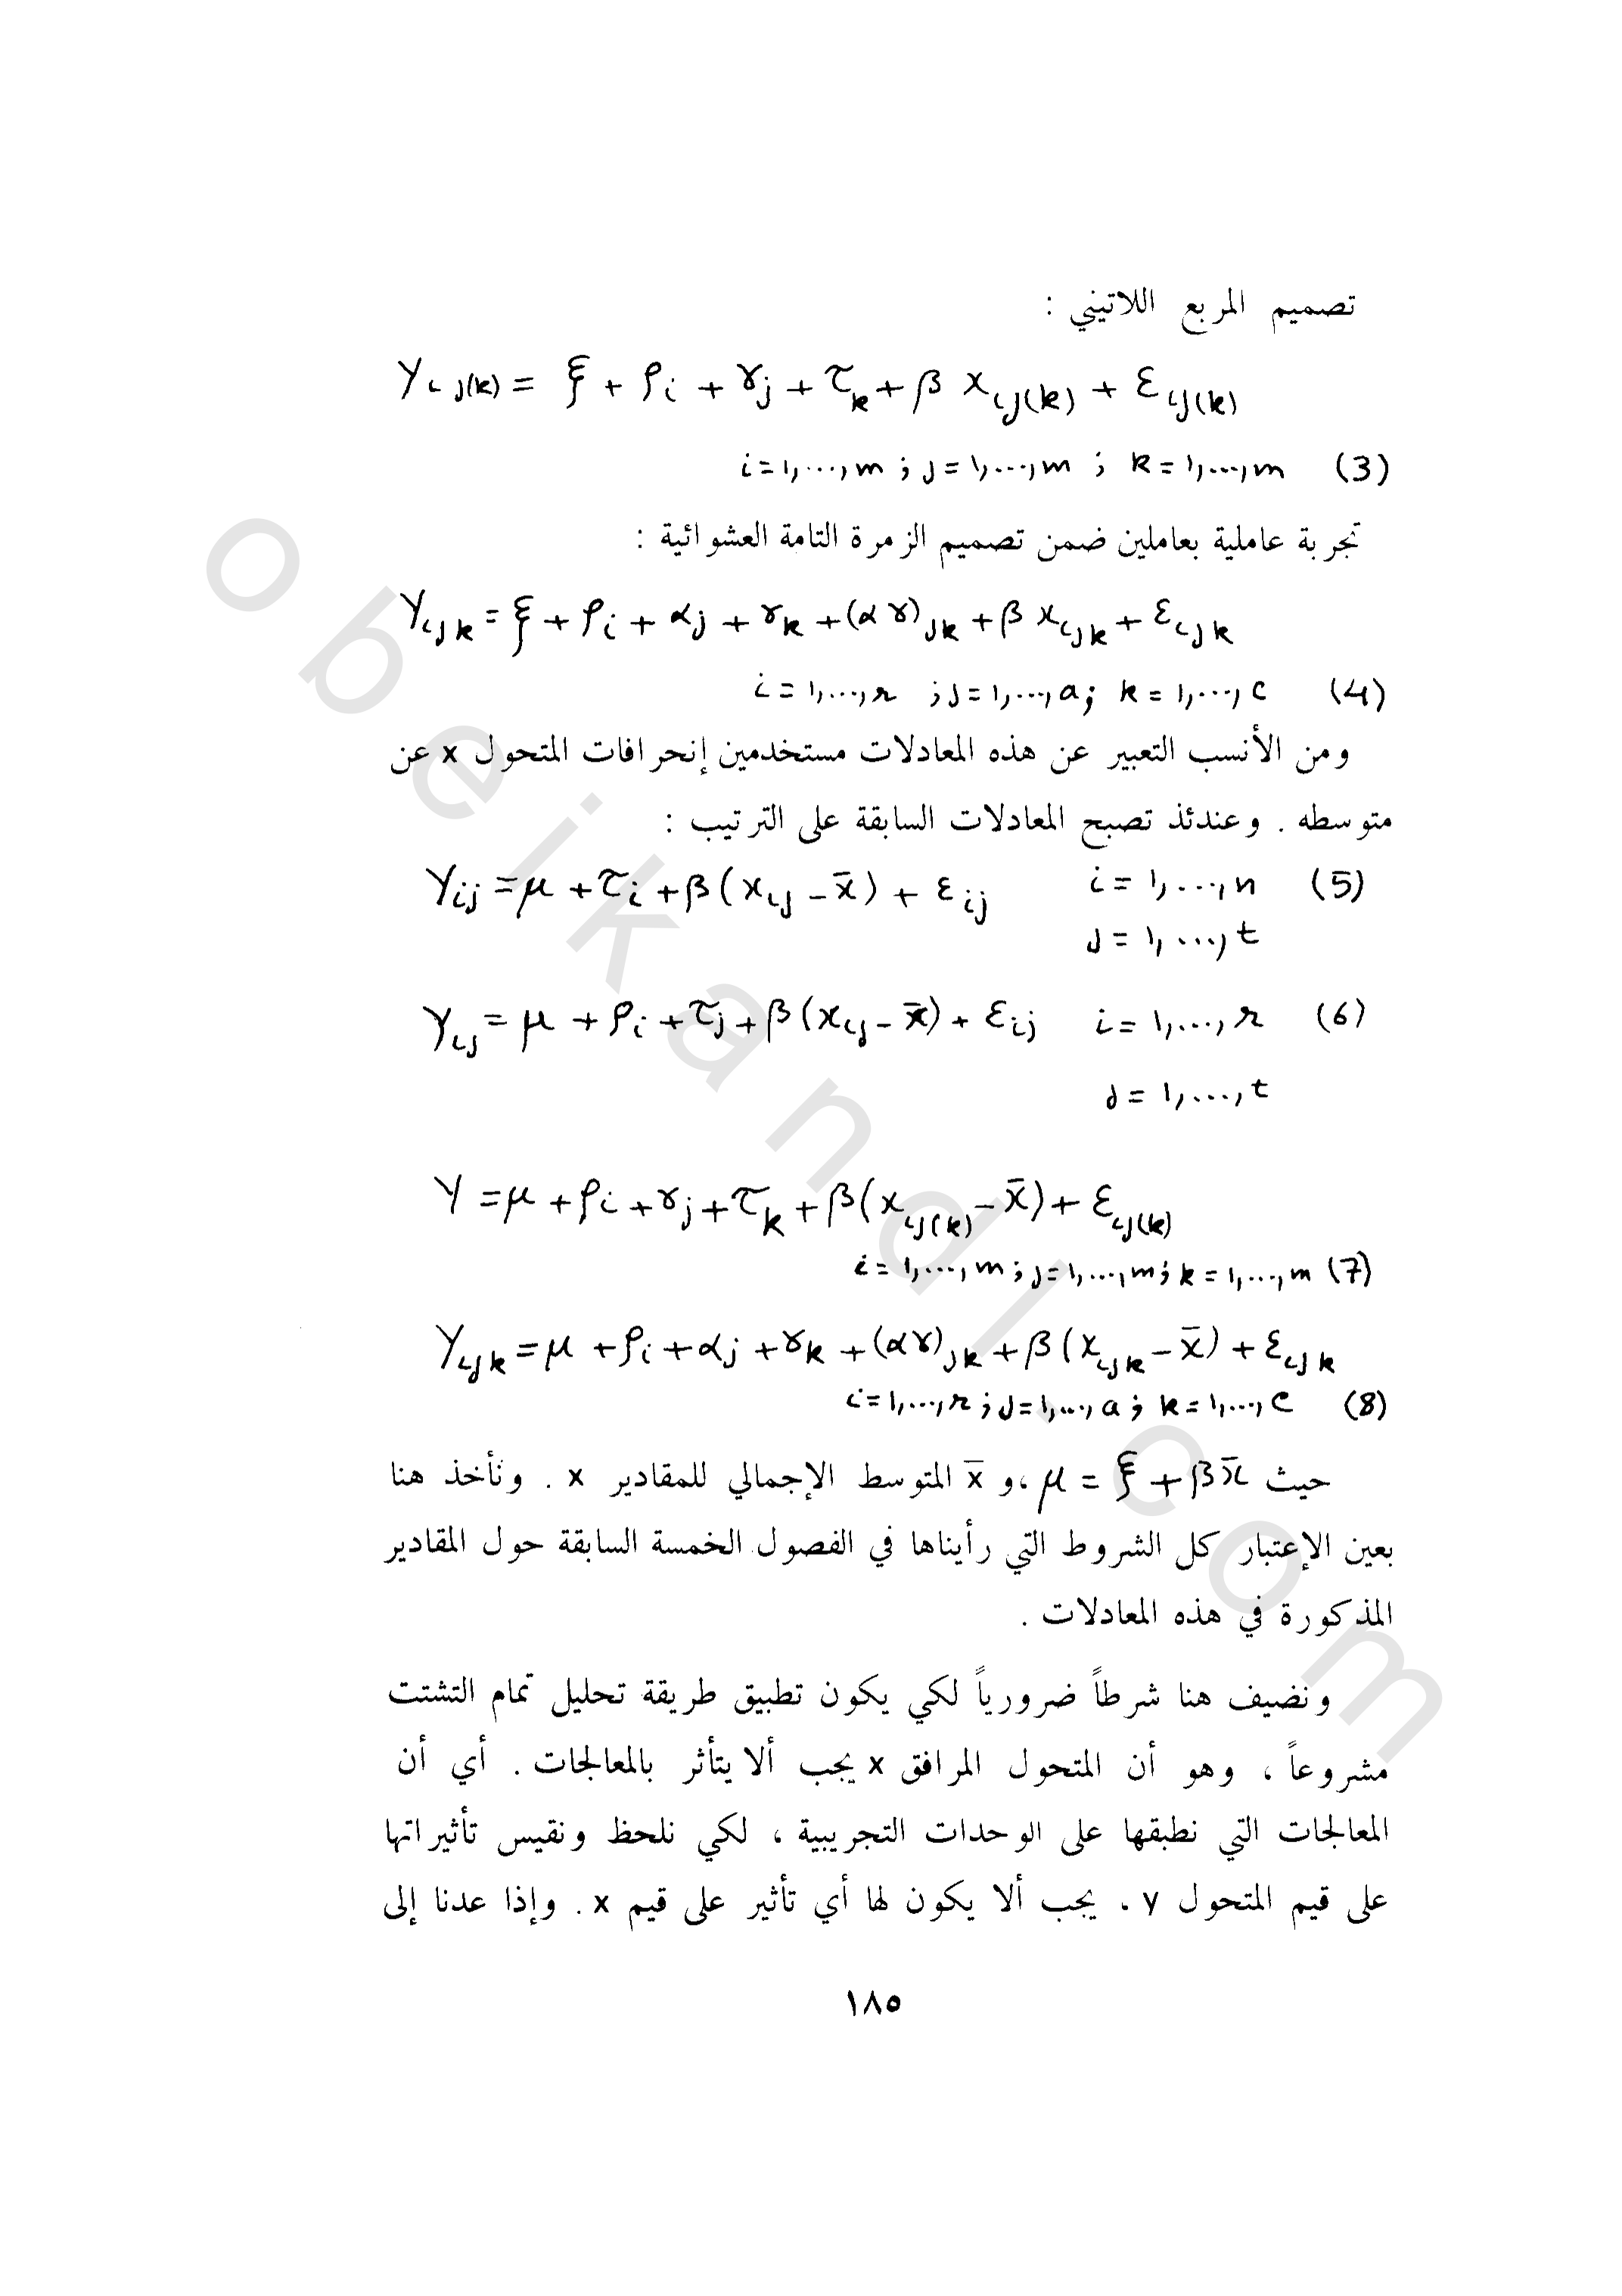 تصميم المربع اللاتيني :
Y_{ij(k)} = ξ + ρ_i + γ_j + τ_k + β x_{ij(k)} + ε_{ij(k)}
i = 1,...,m ; j = 1,...,m ; k = 1,...,m (3)
تجربة عاملية بعاملين ضمن تصميم الزمرة التامة العشوائية :
Y_{ijk} = ξ + ρ_i + α_j + γ_k + (αγ)_{jk} + β x_{ijk} + ε_{ijk}
i = 1,...,r ; j = 1,...,a ; k = 1,...,c (4)
ومن الأنسب التعبير عن هذه المعادلات مستخدمين إنحرافات المتحول x عن
متوسطه . وعندئذ تصبح المعادلات السابقة على الترتيب :
Y_{ij} = μ + τ_i + β(x_{ij} - x̄) + ε_{ij} i = 1,...,n (5)
j = 1,...,t
Y_{ij} = μ + ρ_i + τ_j + β(x_{ij} - x̄) + ε_{ij} i = 1,...,r (6)
j = 1,...,t
Y = μ + ρ_i + γ_j + τ_k + β(x_{ij(k)} - x̄) + ε_{ij(k)}
i = 1,...,m ; j = 1,...,m ; k = 1,...,m (7)
Y_{ijk} = μ + ρ_i + α_j + γ_k + (αγ)_{jk} + β(x_{ijk} - x̄) + ε_{ijk}
i = 1,...,r ; j = 1,...,a ; k = 1,...,c (8)
حيث μ = ξ + βx̄ ،و x̄ المتوسط الإجمالي للمقادير x . ونأخذ هنا
بعين الإعتبار كل الشروط التي رأيناها في الفصول الخمسة السابقة حول المقادير
المذكورة في هذه المعادلات .
ونضيف هنا شرطاً ضرورياً لكي يكون تطبيق طريقة تحليل تمام التشتت
مشروعاً ، وهو أن المتحول المرافق x يجب ألا يتأثر بالمعالجات . أي أن
المعالجات التي نطبقها على الوحدات التجريبية ، لكي نلحظ ونقيس تأثيراتها
على قيم المتحول y ، يجب ألا يكون لها أي تأثير على قيم x . وإذا عدنا إلى
١٨٥
obeikandl.com